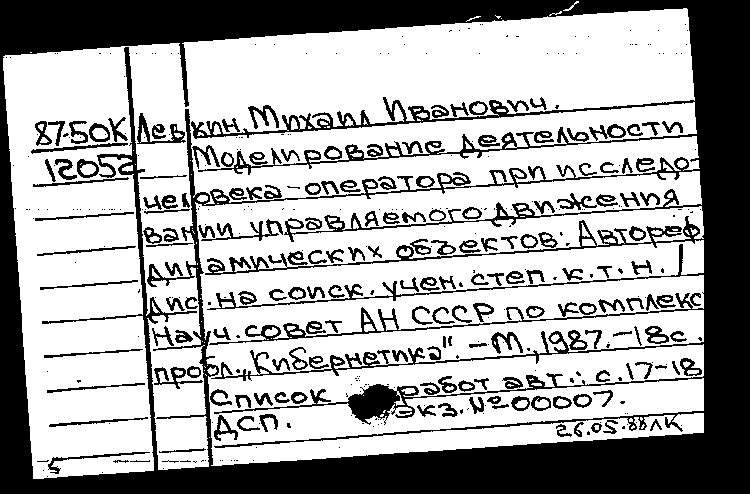 87-50К Левкин, Михаил Иванович.
12052 Моделирование деятельности
человека-оператора при исследо-
вании управляемого движения
динамических объектов: Автореф.
дис. на соиск. учен. степ. к.т.н. /
Науч. совет АН СССР по комплекс.
пробл. „Кибернетика". - М., 1987. - 18с.
Список работ авт.: с. 17-18
ДСП. Экз. № 00007.
26.05.88 ЛК